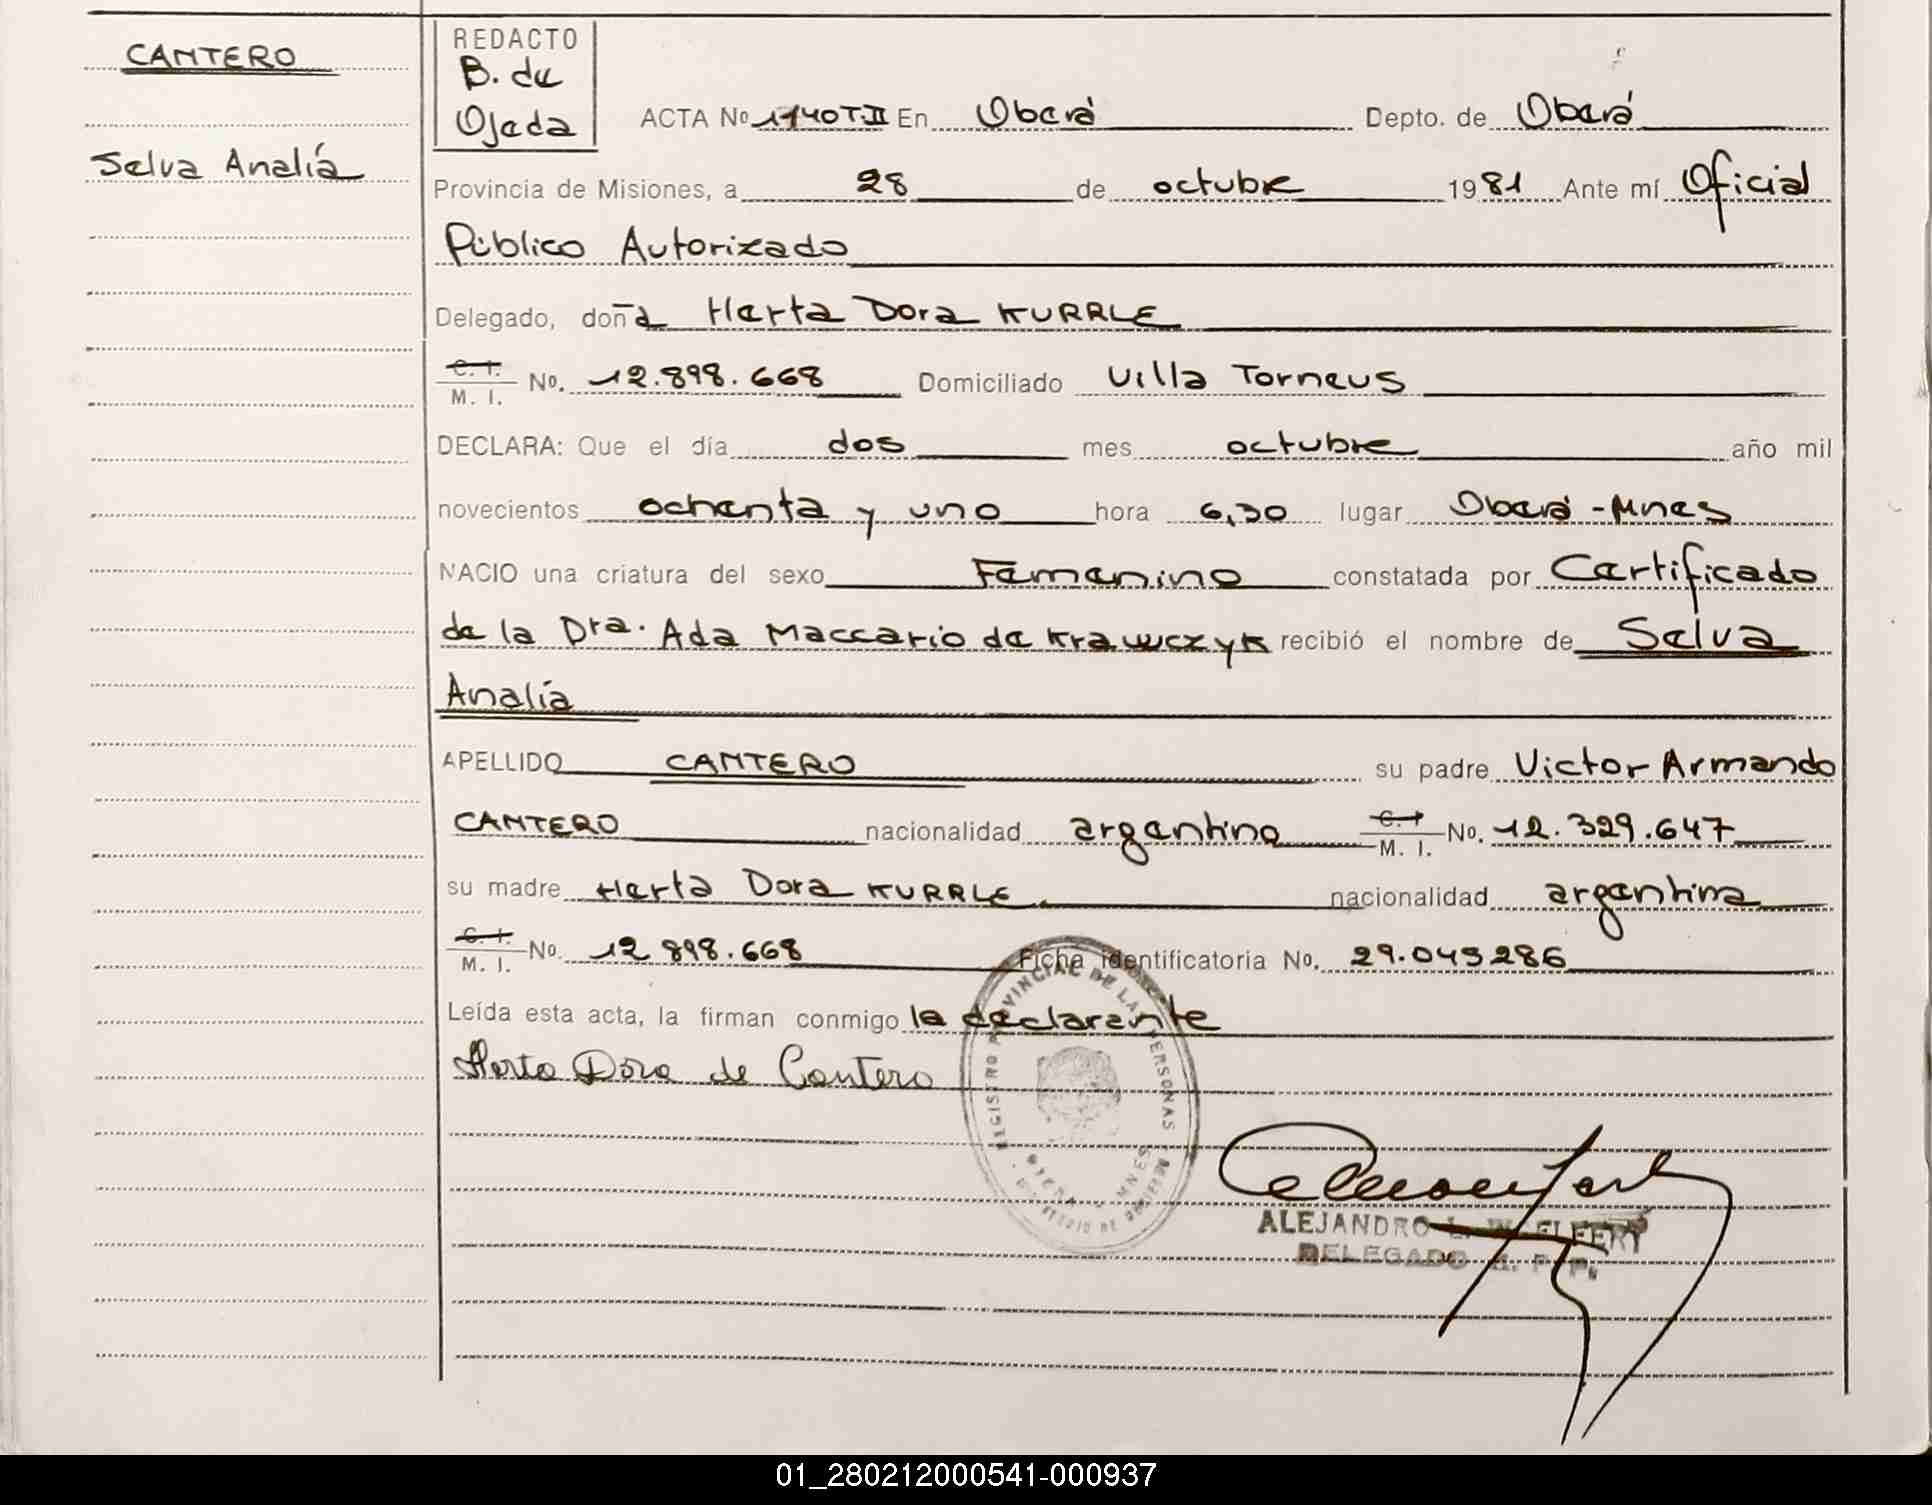 CANTERO
Selva Analía
REDACTO
B. de
Ojeda
ACTA No 1140 T.II En Oberá Depto. de Oberá
Provincia de Misiones, a 28 de octubre 1981 Ante mí Oficial
Público Autorizado
Delegado, doña Herta Dora KURRLE
C. I.
M. I. No. 12.898.668 Domiciliado Villa Torneus
DECLARA: Que el día dos mes octubre año mil
novecientos ochenta y uno hora 6,30 lugar Oberá - Mnes
NACIO una criatura del sexo Femenino constatada por Certificado
de la Dra. Ada Maccario de Krawczyk recibió el nombre de Selva
Analía
APELLIDO CANTERO su padre Victor Armando
CANTERO nacionalidad argentino C. I. M. I. No. 12.329.647
su madre Herta Dora KURRLE. nacionalidad argentina
C. I.
M. I. No. 12 898.668 Ficha identificatoria No. 29.043286
Leída esta acta, la firman conmigo la declarante
Herta Dora de Cantero
REGISTRO PROVINCIAL DE LAS PERSONAS
MNES
ALEJANDRO L.
DELEGADO R. P. P.
01_280212000541-000937